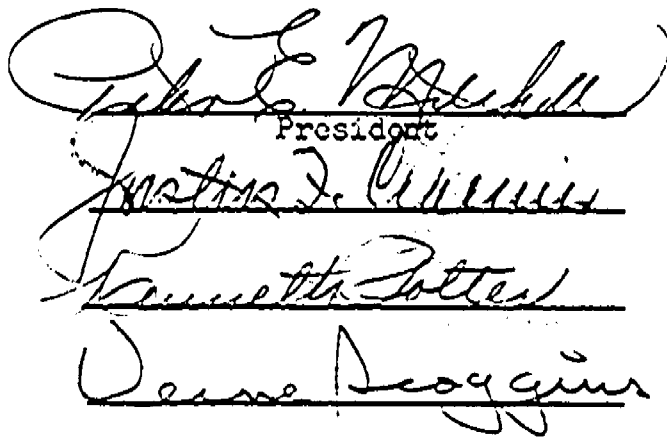 E. Mitchell
President
Justin F.
Kenneth Potter
Deane Scoggins